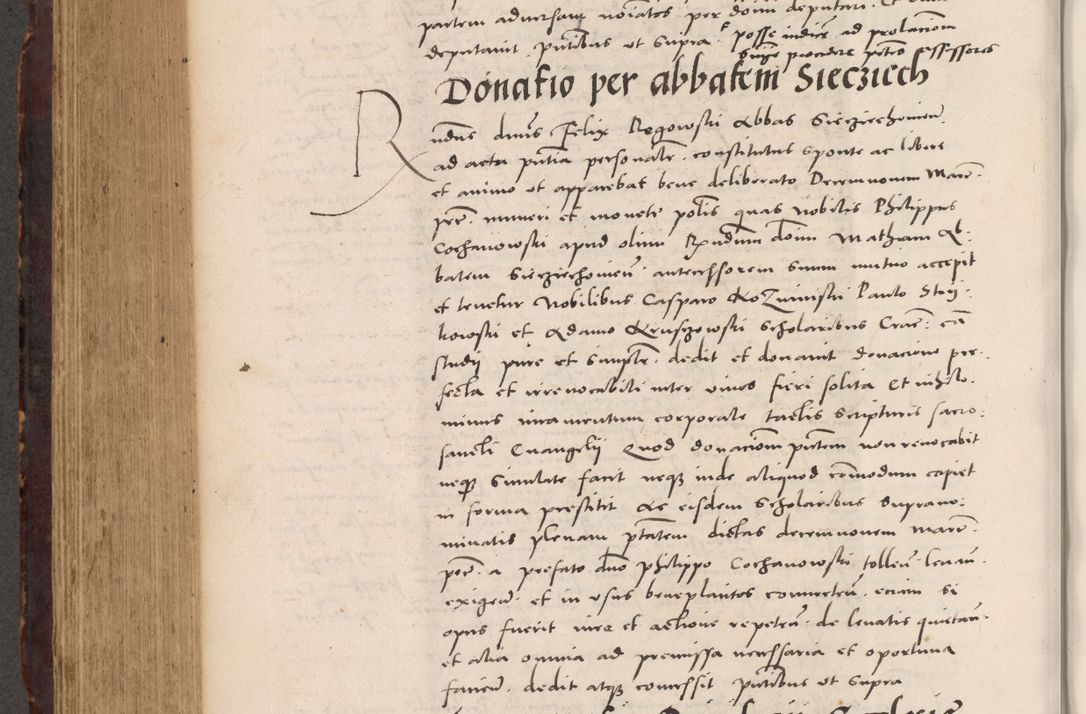 partem adversam noiatos per doim deputari. Et
deputavit p͞ntibus ut supra. posse indicē ad prolaciom
sine procedere petens assessores
Donatio per abbatem Siecziech
Rndus dnus Felix Rogowski Abbas Sieciechouien.
ad acta p͞ntia personalr. constitutus sponte ac libere
et animo ut apparebat bene deliberato Decemnovem Marc.
pec. numeri et monete polis quas Nobilis Philippus
Cochanowski apud olim Rndum doim Mathiam Ab-
batem Siecziechouien. antecessorem suum mutuo accepit
et tenetur Nobilibus Casparo Kozminski Paulo Strij-
kowski et Adamo Kruszowski Scholaribus Crac. cā
studij pure et simplr. dedit et donavit donacione per-
fecta et irrevocabili inter vivos fieri solita Et nihilo-
minus iuramentum corporale tactis scripturis sacro-
sancti Evangelij Quod donaciom p͞ntem non revocabit
neque simulate facit neque inde aliquod cōmodum capiet
in forma prestitit Ac eisdem Scholaribus suprano-
minatis plenam p͞tatem dictas decemnovem marc.
pec. a prefato dno Philippo Cochanowski tollen. levan.
exigen. et in usus beneplacitos converten. eciam si
opus fuerit iure et actione repeten. de levatis quietan.
et alia omnia ad premissa necessaria et oportuna
facien. dedit atque concessit p͞ntibus ut supra